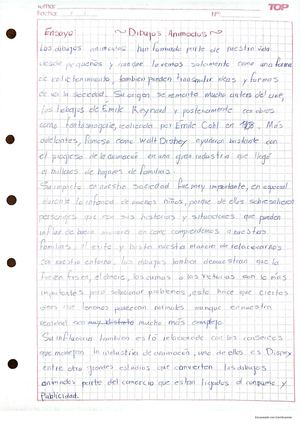 TOP
Fecha: Nº
Ensayo ~Dibujos Animados~
Los dibujos animados han formado parte de nuestra vida
desde pequeños y aunque lo vemos solamente como una forma
de entretenimiento, tambien pueden transmitir ideas y formas
de ver la sociedad. Su origen se remonta mucho antes del cine,
los trabajos de Émile Reynaud y posteriormente con obras
como fantasmagorie, realizada por Émile Cohl en 1908. Más
adelante, famosos como Walt Disney ayudaron bastante con
el progreso de la animación en una gran industria que llegó
a millones de hogares de familias.
Su impacto en nuestra sociedad fue muy importante, en especial
durante la infancia de muchos niños, porque de ellos sobresalieron
personajes que con sus historias y situaciones que pueden
influir de buena manera en como comprendemos a nuestras
familias, el exito y hasta nuestra manera de relacionarnos
con nuestro entorno, los dibujos tambien demuestran que la
fuerza fisica, el dinero, las armas o las victorias son lo más
importantes para solucionar problemas, esto hace que ciertas
cosas que tenemos parezcan normales aunque en nuestra
realidad son mucho más complejo.
Su influencia tambien está relacionada con las
que manejan la industria de animación, uno de ellos es Disney
entre otro grandes estudios que convierten los dibujos
animados parte del comercio que estan ligados al consumo y
Publicidad.
Escaneado con CamScanner